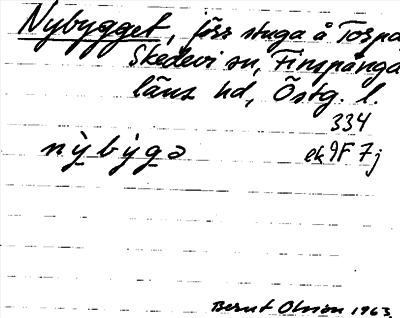 Nybygget, förr stuga å Torpa
Skedevi sn, Finspånga
läns hd, Östg. l.
334
nỳbỳgə ek 9F 7j
Bernt Olsson 1963.